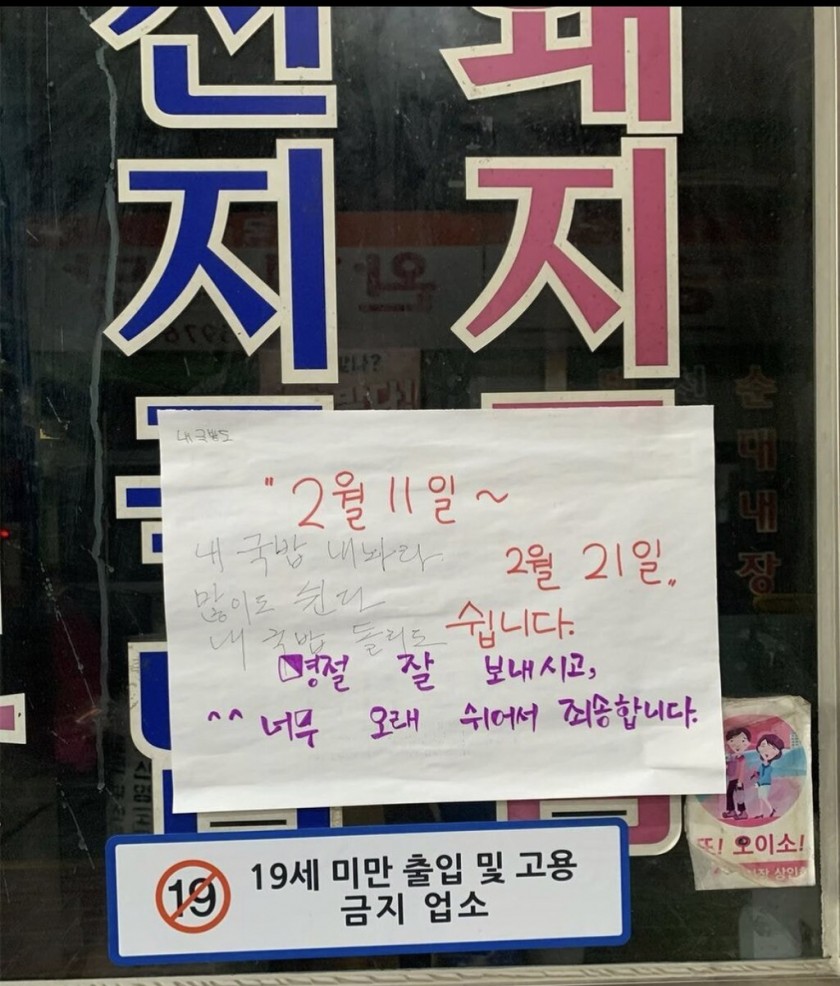 선
돼
지
지
순
대
내
장
내 국밥도
" 2월 11일 ~
내 국밥 내놔라
2월 21일 "
많이도 쉰다
쉽니다.
내 국밥 돌리도
명절 잘 보내시고,
^^ 너무 오래 쉬어서 죄송합니다.
또! 오이소!
19
19세 미만 출입 및 고용
금지 업소